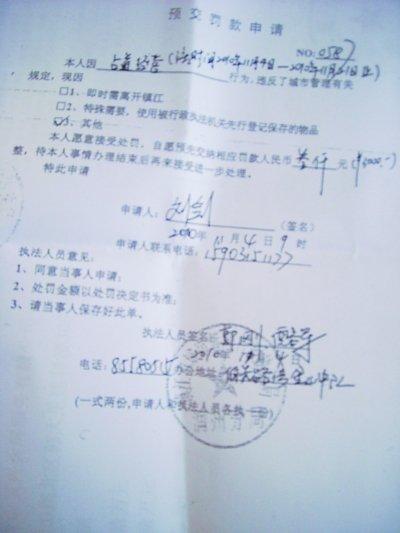 预交罚款申请
NO:0587
本人因 占道经营(时间2010年11月4日—2010年11月21日止)
规定,现因 行为,违反了城市管理有关
□1、即时需离开镇江
□2、特殊需要,使用被行政执法机关先行登记保存的物品
☑3、其他
本人愿意接受处罚,自愿预先交纳相应罚款人民币 仟 元(¥ 000.-)
整,待本人事情办理结束后再来接受进一步处理。
特此申请
申请人:刘剑 (签名)
2010年11月4日9时
申请人联系电话:15903151177
执法人员意见:
1、同意当事人申请;
2、处罚金额以处罚决定书为准;
3、请当事人保存好此单。
执法人员签名:
2010年11月4日
电话:8558054 办公地址:
(一式两份,申请人和执法人员各执一份)